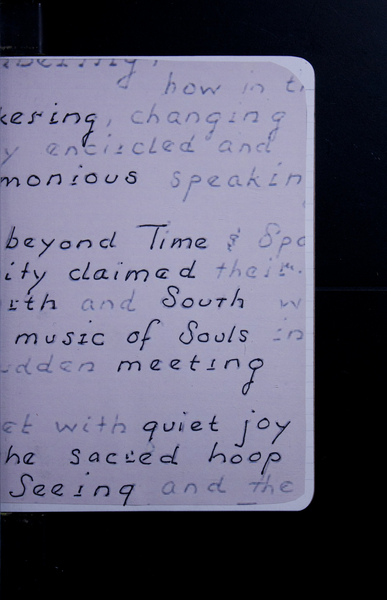 how in
changing
encircled and
monious speakin
beyond Time & Spa
ity claimed their
rth and South w
music of Souls in
udden meeting
et with quiet joy
he sacred hoop
Seeing and the